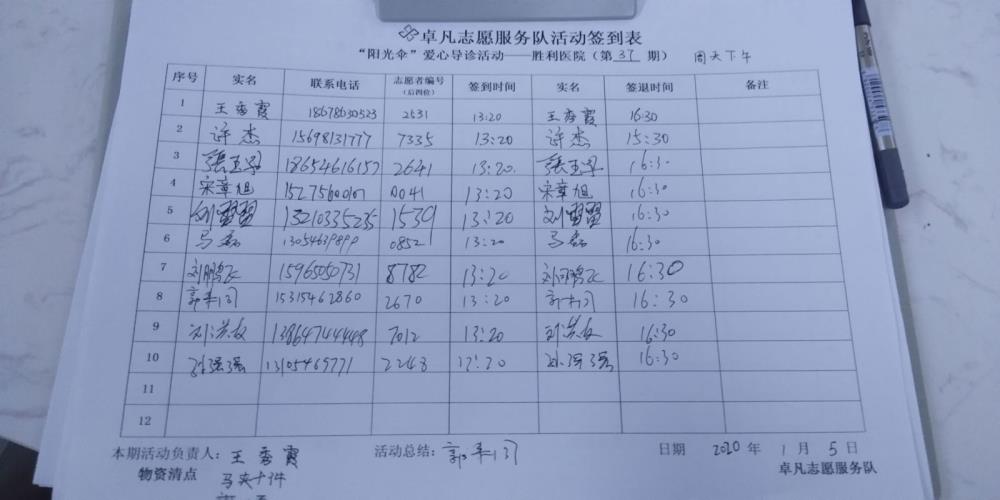 卓凡志愿服务队活动签到表
“阳光伞”爱心导诊活动——胜利医院（第37期） 周天下午
序号 实名 联系电话 志愿者编号（后四位） 签到时间 实名 签退时间 备注
1 王秀霞 18678630523 2531 13:20 王秀霞 16:30
2 许杰 15698131777 7335 13:20 许杰 15:30
3 18654616157 2641 13:20 16:30
4 宋章旭 0041 13:20 宋章旭 16:30
5 刘 13210335235 1539 13:20 刘 16:30
6 马磊 13054639899 0852 13:20 马磊 16:30
7 刘鹏飞 15965050731 8782 13:20 刘鹏飞 16:30
8 郭 15315462860 2670 13:20 郭 16:30
9 刘洪友 13864744448 7012 13:20 刘洪友 16:30
10 孙强强 13105469771 2248 13:20 孙强强 16:30
11
12
本期活动负责人：王秀霞 活动总结：郭 日期 2020年1月5日
物资清点 马夹十件 卓凡志愿服务队